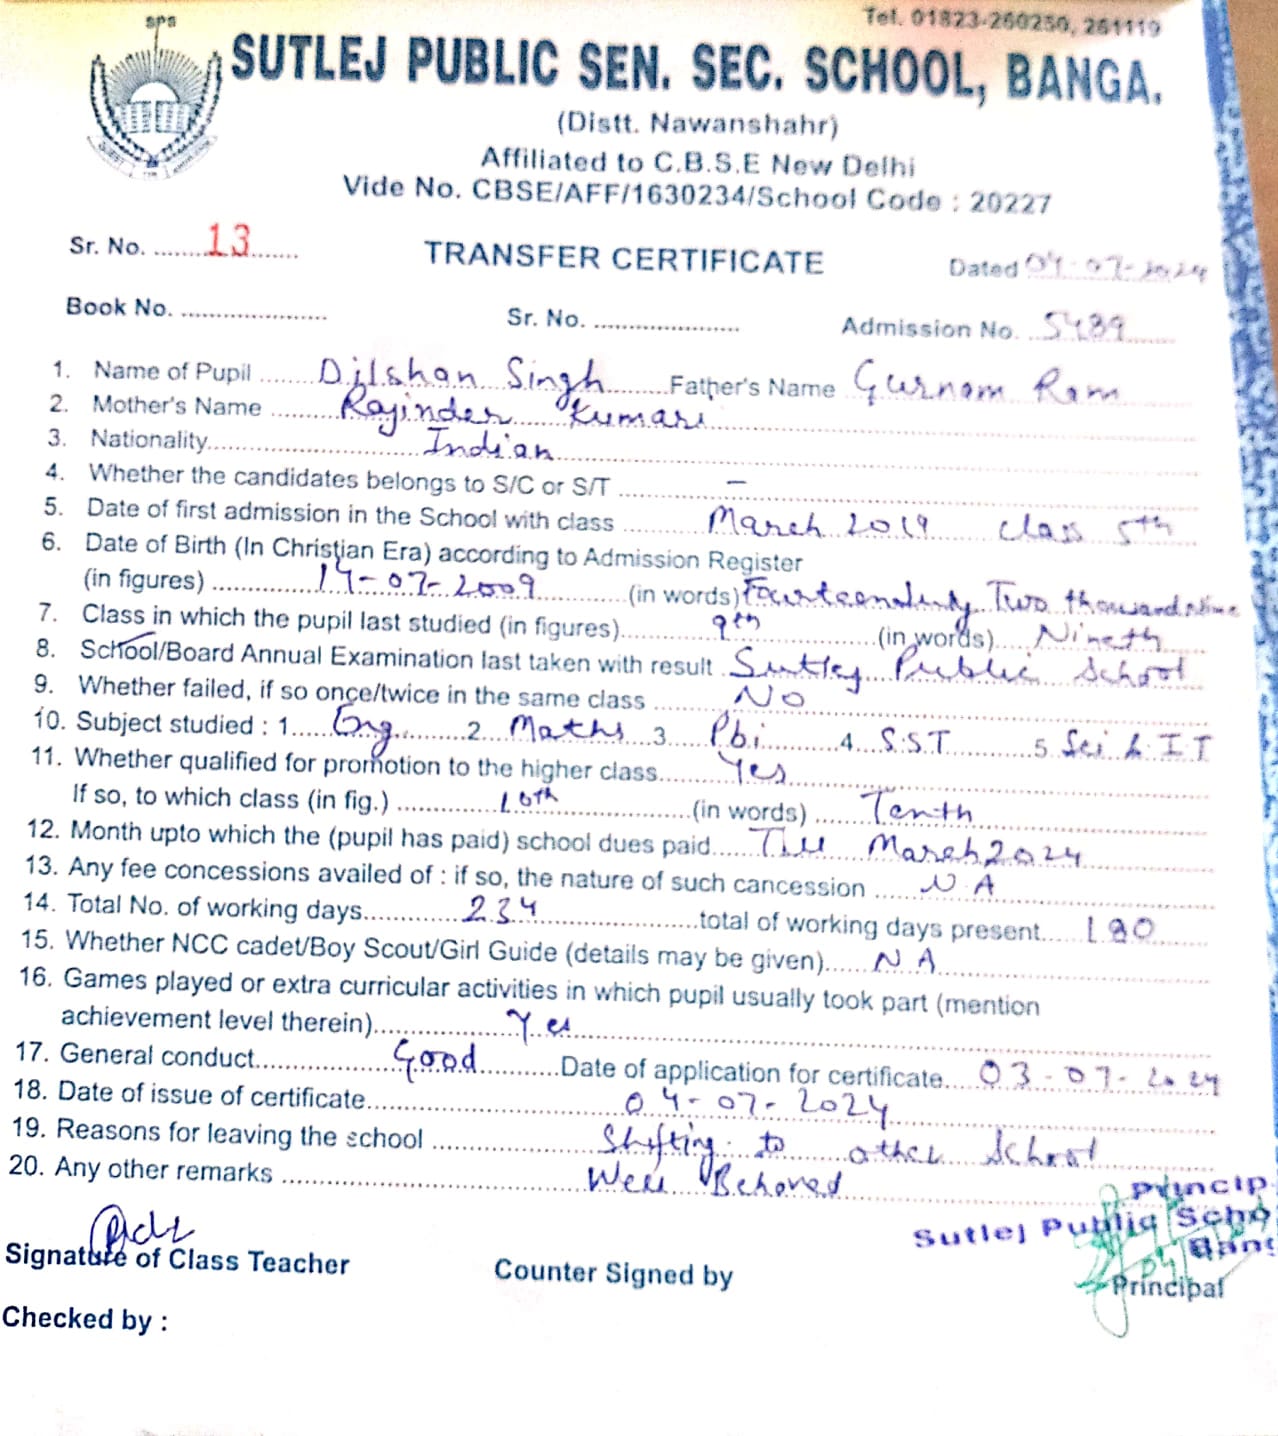 SPS
Tel. 01823-260250, 261119
SUTLEJ PUBLIC SEN. SEC. SCHOOL, BANGA.
(Distt. Nawanshahr)
Affiliated to C.B.S.E New Delhi
Vide No. CBSE/AFF/1630234/School Code : 20227
Sr. No. ........13....... TRANSFER CERTIFICATE Dated 04-07-2024
Book No. ...................... Sr. No. ...................... Admission No. 5489
1. Name of Pupil ....... Dilshan Singh ........ Father's Name Gurnam Ram
2. Mother's Name .......... Rajinder Kumari
3. Nationality.............................. Indian
4. Whether the candidates belongs to S/C or S/T ............. –
5. Date of first admission in the School with class .......... March 2019 Class 5th
6. Date of Birth (In Christian Era) according to Admission Register
(in figures) ............... 14-07-2009 ............ (in words) Two thousand Nine
7. Class in which the pupil last studied (in figures)........... 9th ............... (in words).... Nineth
8. School/Board Annual Examination last taken with result . Sutlej Public School
9. Whether failed, if so once/twice in the same class .......... NO
10. Subject studied : 1..... Eng .......... 2. Maths ... 3. Pbi .......... 4. S.S.T .......... 5. Sci & I.T
11. Whether qualified for promotion to the higher class........ Yes
If so, to which class (in fig.) .............. 10th .................. (in words) ...... Tenth
12. Month upto which the (pupil has paid) school dues paid..... Till March 2024
13. Any fee concessions availed of : if so, the nature of such cancession ..... N A
14. Total No. of working days............. 234 ..................... total of working days present..... 180
15. Whether NCC cadet/Boy Scout/Girl Guide (details may be given)..... N A
16. Games played or extra curricular activities in which pupil usually took part (mention
achievement level therein).................. Yes
17. General conduct................. Good .......... Date of application for certificate.... 03-07-2024
18. Date of issue of certificate................................ 04-07-2024
19. Reasons for leaving the school ..................... Shifting to other School
20. Any other remarks ...................................... Well Behaved
Princip
Sutlej Public Scho
Bang
Signature of Class Teacher Counter Signed by Principal
Checked by :